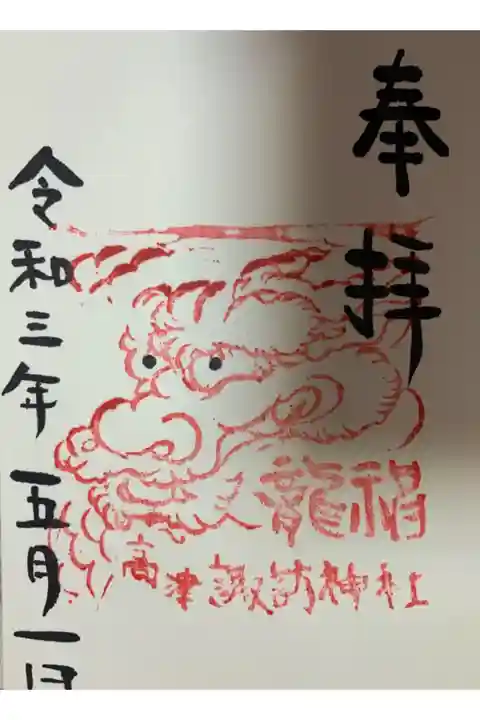 奉拝
龍神
高津諏訪神社
令和三年五月一日